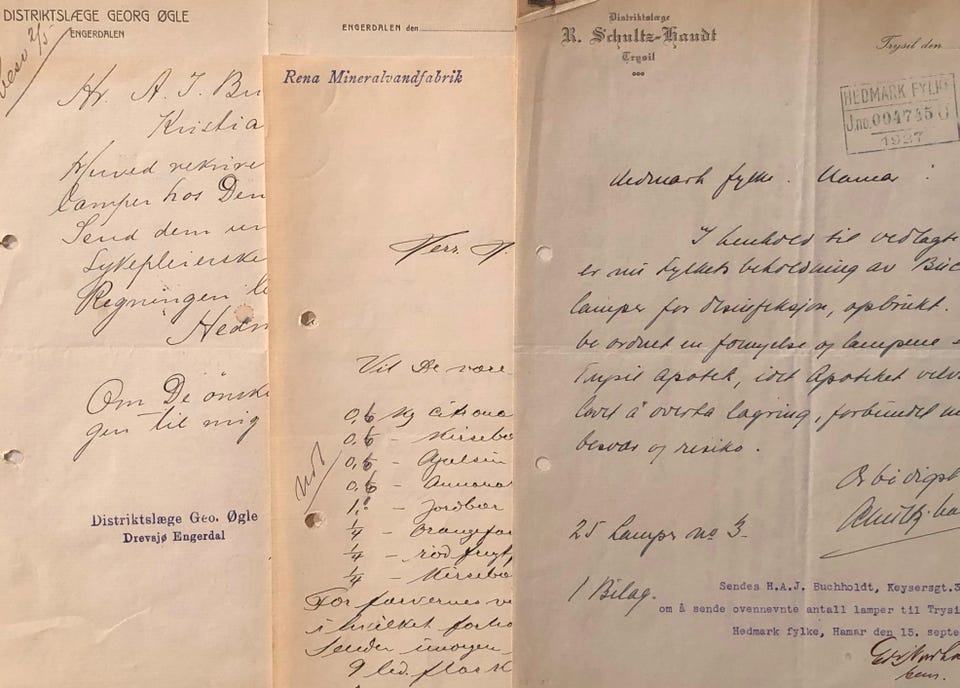 DISTRIKTSLÆGE GEORG ØGLE
ENGERDALEN
besv 2/5
Hr. A. J. Bu
Kristia
Herved rekvire
lamper hos Den
Send dem un
Sykepleierske
Regningen
Hedm
Om De ønske
gen til mig
Distriktslæge Geo. Øgle
Drevsjø Engerdal
ENGERDALEN den
Rena Mineralvandfabrik
Herr H.
Vil De være
0,5 kg Citrona
0,5 - Kirsebæ
0,5 - Apelsin
0,5 - Annana
1,0 - Jordbær
1/4 - Orangefar
1/4 - rød frugt
1/4 - Kirsebæ
For farvernes ve
i hvilket forho
sender
9 lid. flask
Distriktslæge
R. Schultz-Haudt
Trysil
Trysil den
HEDMARK FYLKE
J.no. 004745
1937
Hedmark fylke. Hamar.
I henhold til vedlagte
er nu fylkets beholdning av Buc
lamper for desinfeksjon, opbrukt.
be ordnet en fornyelse og lampene
Trysil Apotek, idet Apoteket velv
lovet å overta lagring, forbundet m
besvær og risiko.
Ærbødigst
25 Lamper no 3.
1 Bilag.
Sendes H.A.J. Buchholdt, Keysersgt.3
om å sende ovennevnte antall lamper til Trysi
Hedmark fylke, Hamar den 15. septe